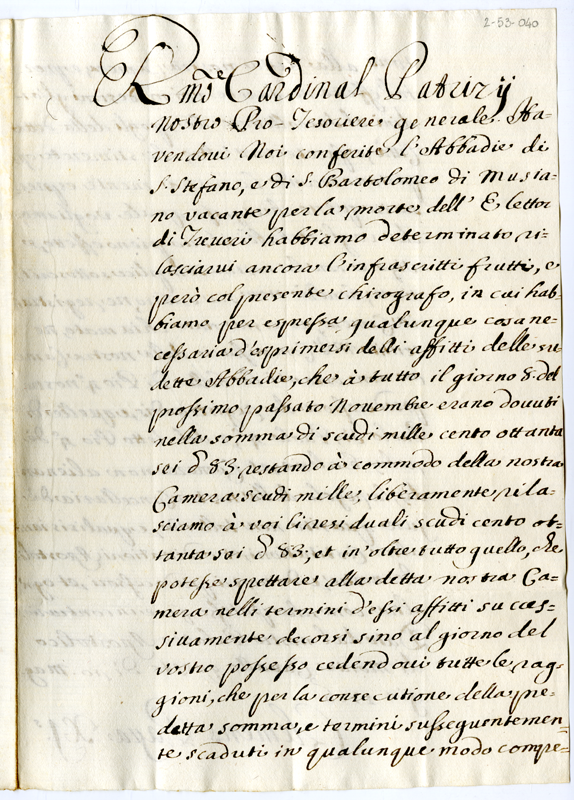 2-53-040
R.mo Cardinal Patrizij
nostro Pro-Tesoriere generale. Ha=
vendovi Noi conferite l'Abbadie di
S. Stefano, e di S. Bartolomeo di Musia=
no vacante per la morte dell' Elettor
di Treveri habbiamo determinato ri=
lasciarvi ancora l'infrascritti frutti, e
però col presente chirografo, in cui hab=
biamo per espressa qualunque cosa ne=
cessaria d'esprimersi delli affitti delle su=
dette Abbadie, che à tutto il giorno 8. del
prossimo passato Novembre erano dovuti
nella somma di scudi mille cento ottanta
sei d 83. restando à commodo della nostra
Camera scudi mille, liberamente rila=
sciamo à voi li residuali scudi cento ot=
tanta sei d 83, et in oltre tutto quello, che
potesse spettare alla detta nostra Ca=
mera nelli termini d'essi affitti succes=
sivamente decorsi sino al giorno del
vostro possesso cedendovi tutte le rag=
gioni, che per la consecutione della pre=
detta somma, e termini susseguentemen=
te scaduti in qualunque modo compe=